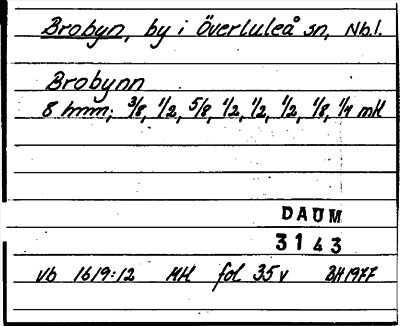 Brobyn, by i Överluleå sn, Nb.l.
Brobynn
8 hmm; 3/8, 1/2, 5/8, 1/2, 1/2, 1/2, 1/8, 1/4 mtl
DAUM
3143
Vb 1619:12 MH fol 35v BH1977